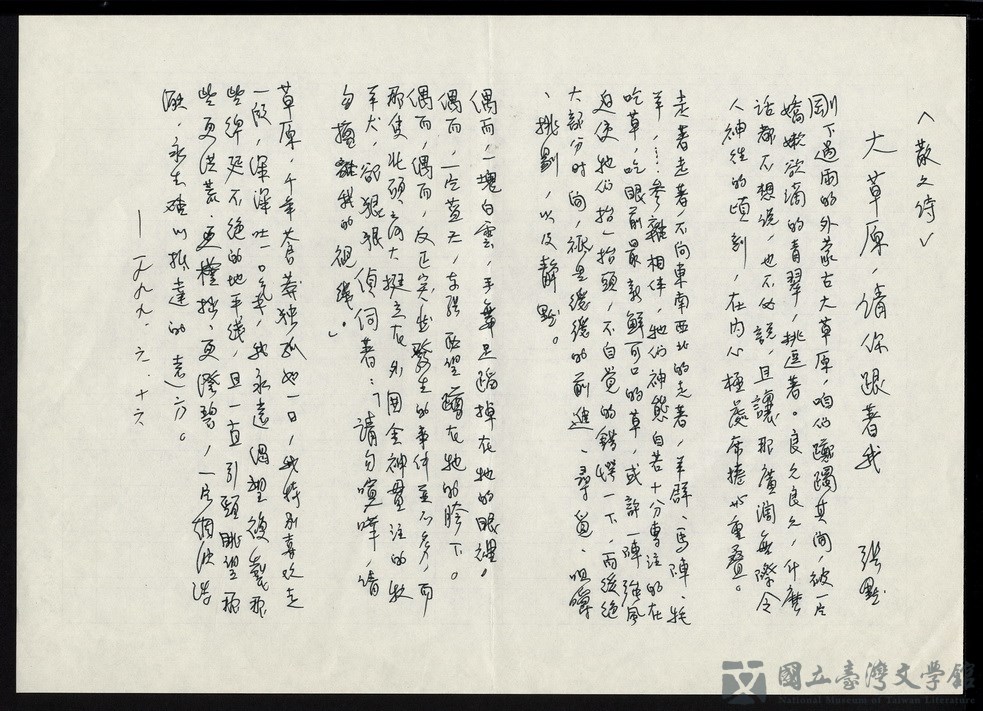 〈散文詩〉
大草原,請你跟著我 張默
剛下過雨的外蒙古大草原,咱們躑躅其間,被一片
嬌嫩欲滴的青翠,挑逗著。良久良久,什麼
話都不想說,也不必說,且讓那廣闊無際令
人神往的頃刻,在內心極處席捲與重疊。
走著走著,不向東南西北的走著,羊群、馬陣、牦
羊,……參雜相伴,牠們神態自若十分專注的在
吃草,吃眼前最新鮮可口的草,或許一陣強風
迫使牠們抬一抬頭,不自覺的錯愕一下,而後絕
大部分时间,很是緩緩的前進、尋覓、咀嚼
、挑剔,以及靜默。
偶而,一塊白雲,手舞足蹈掉在牠的眼裡。
偶而,一片藍天,東張西望蹲在牠的胯下。
偶而,偶而,反正突然發生的事件並不多,而
那隻北頭高大挺立在外圍全神貫注的牧
羊犬,卻狠狠偵伺著:「請勿喧嘩,請
勿擋離我的視線。」
草原,千年蒼莽独孤如一日,我特别喜欢走
一段,深深吐一口氣,我永遠渴望後載那
些綿延不絕的地平线,且一直引頸眺望那
些更洪荒、更樸拙、更澄碧,一片細浪浩
瀚,永生难以抵達的 遠方。
— 一九九九.六.十六
國立臺灣文學館
National Museum of Taiwan Literature